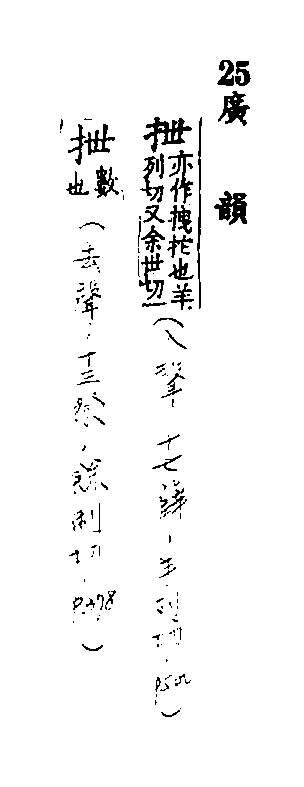 25廣韻
抴亦作拽拕也羊列切又余世切一
（入聲，十七薛，羊列切，P.502）
抴數也
（去聲，十三祭，餘制切，P.378）